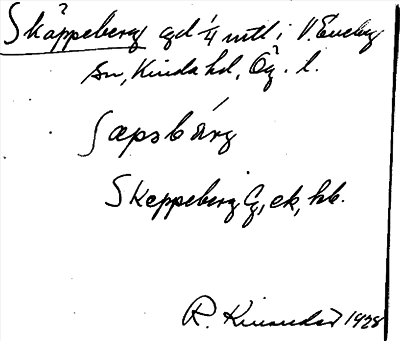 Skäppeberg gd 1/4 mtl i V. Eneby
sn, Kinda hd, Ög. l.
Skeppeberg G, ek, hb.
R. 1928